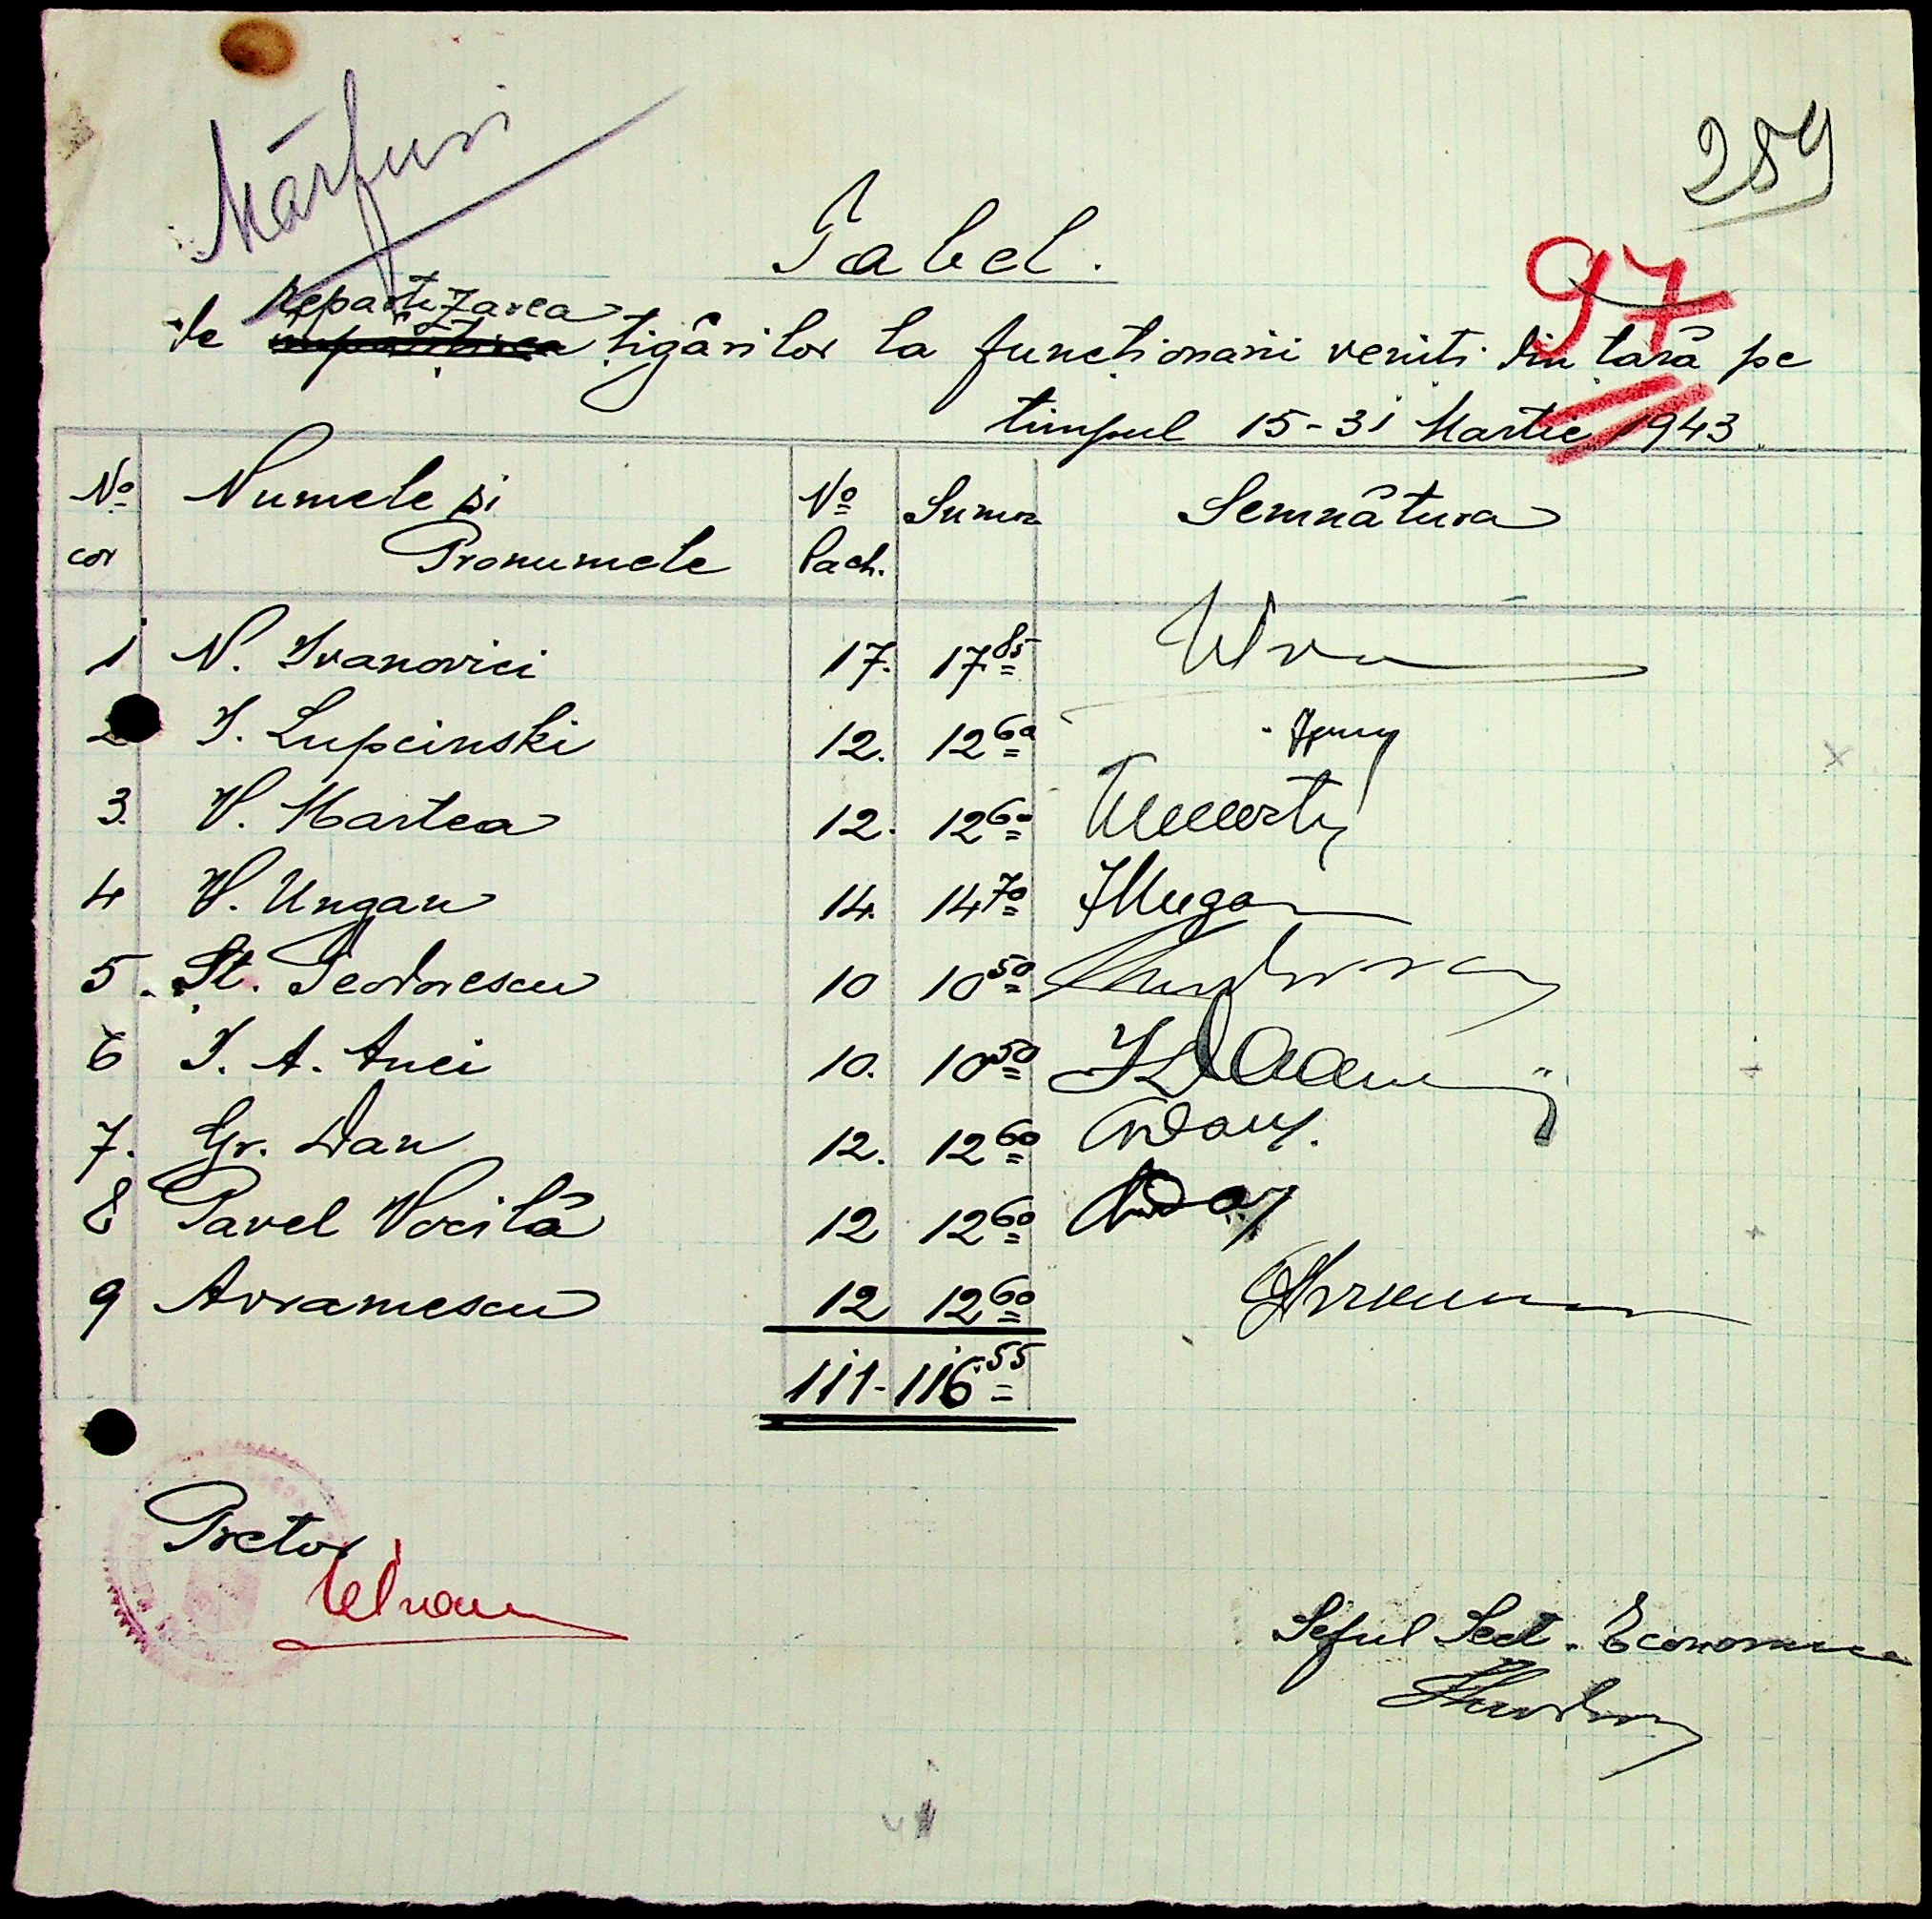 Mărfuri
289
Tabel.
97
de repartizarea țigărilor la funcționarii veniți din țară pe
timpul 15-31 Martie 1943
No cor Numele și Pronumele No Pach. Suma Semnătura
1 N. Ivanovici 17. 17 85
2 I. Lupcinski 12. 12 60
3. V. Martea 12. 12 60
4 V. Ungan 14. 14 70
5. Șt. Teodorescu 10 10 50
6 I. A. Anci 10. 10 50
7. Gr. Dan 12. 12 60
8 Pavel Vocilă 12 12 60
9 Avramescu 12 12 60
111- 116 55
Pretor
Șeful Sect. Economică